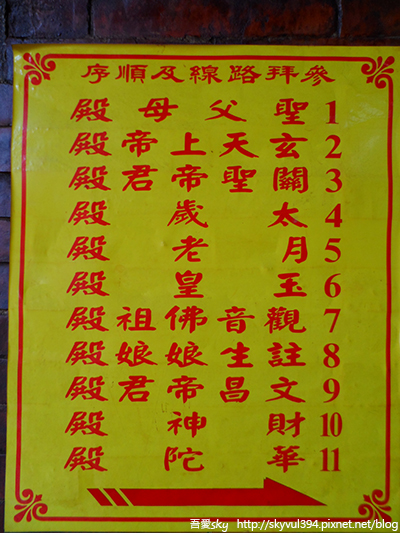 參拜路線及順序
1 聖父母殿
2 玄天上帝殿
3 關聖帝君殿
4 太歲殿
5 月老殿
6 玉皇殿
7 觀音佛祖殿
8 註生娘娘殿
9 文昌帝君殿
10 財神殿
11 華陀殿
吾愛sky http://skyvul394.pixnet.net/blog